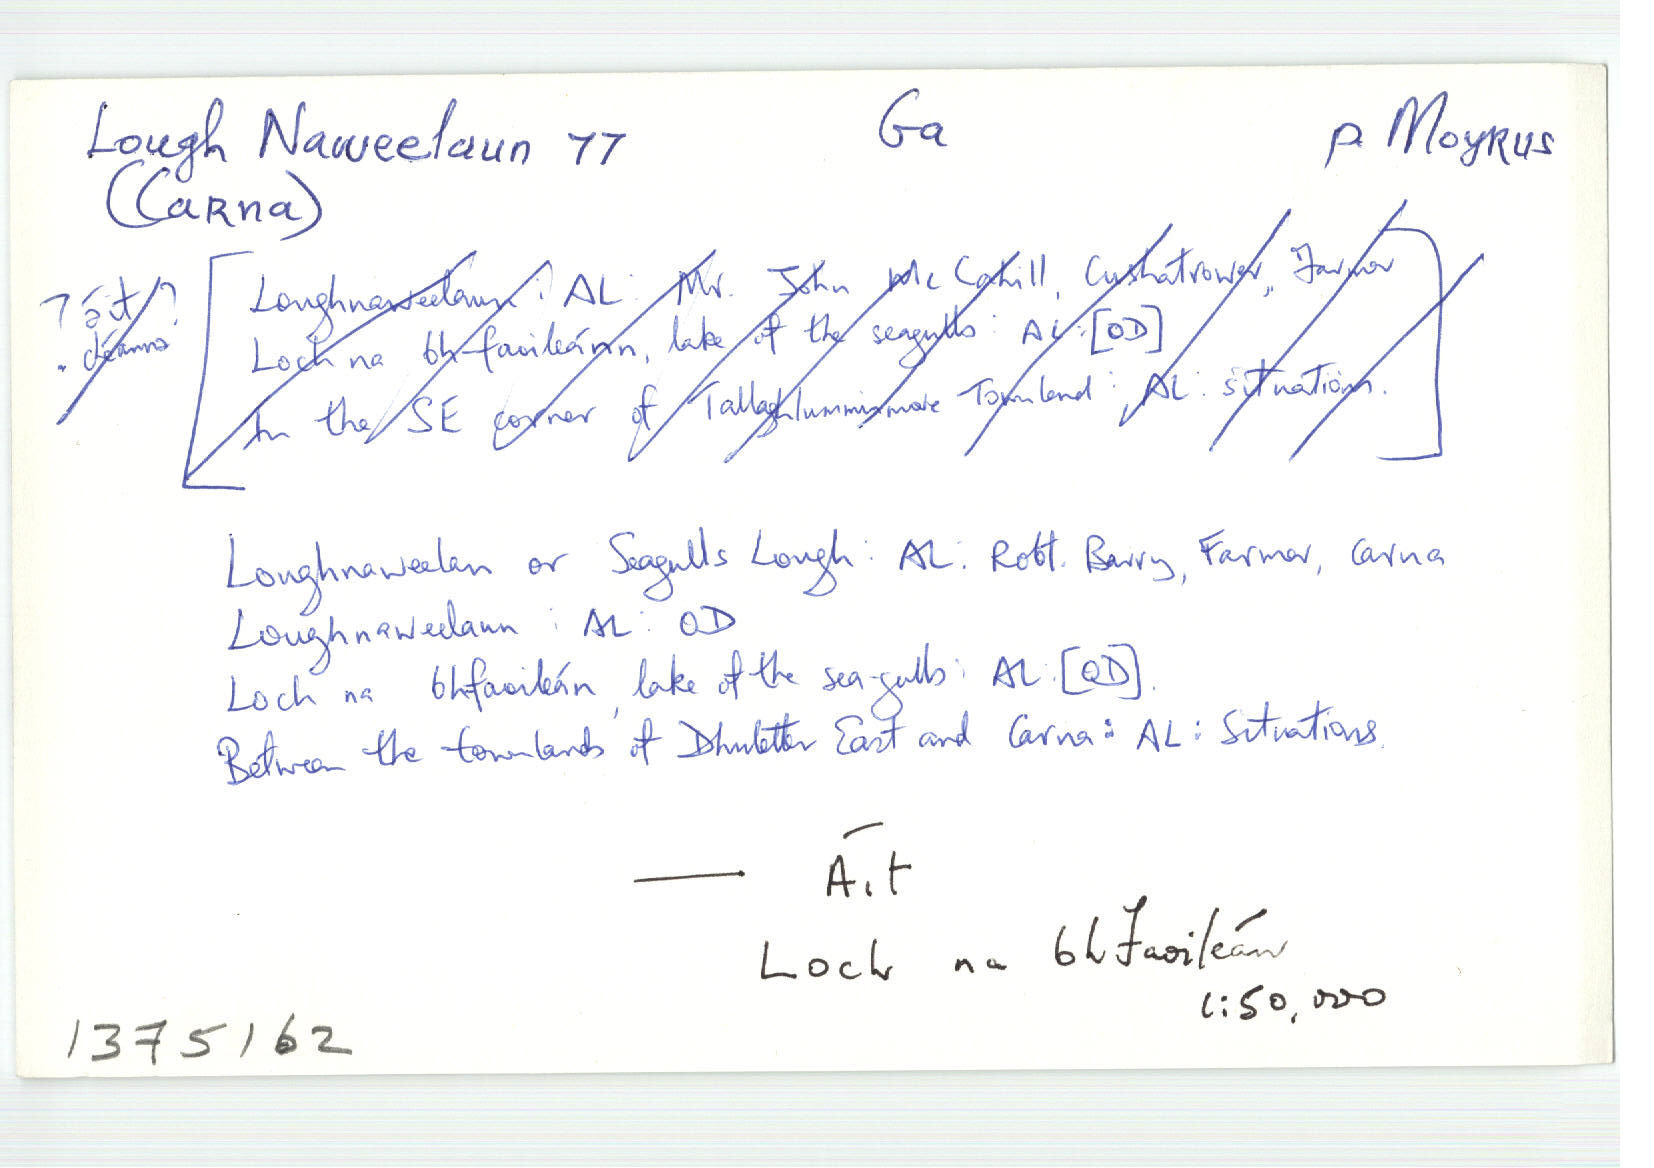 Lough Naweelaun 77 Ga p. Moyrus
(Carna)
? áit ?
Loughnaweelaun : AL : Mr. John McCahill, Cushatrower, Farmer
Loch na bh-faoileánn, lake of the seagulls : AL : [OD]
In the SE corner of Tallaghlumminmore Townland : AL : situations.
Loughnaweelan or Seagulls Lough : AL : Robt. Barry, Farmer, Carna
Loughnaweelaun : AL : OD
Loch na bhfaoileán, lake of the sea-gulls : AL : [OD].
Between the townlands of Dhuletter East and Carna : AL : Situations.
— Áit
Loch na bhFaoileán
1:50,000
1375162